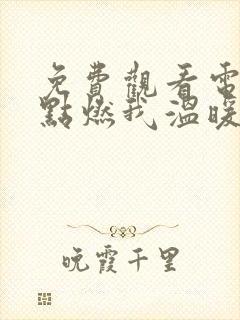 免費觀看電
點燃我溫暖
晚霞千里